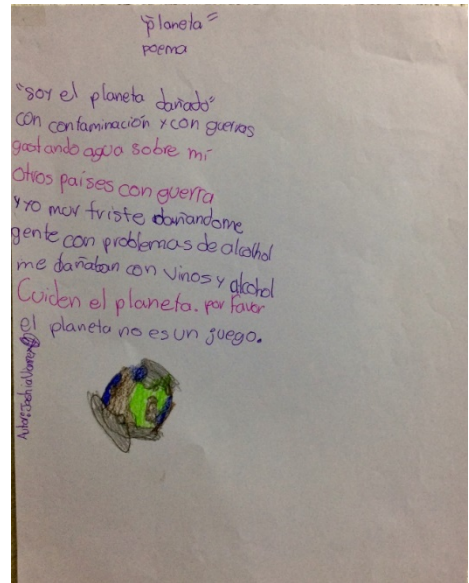 "planeta"
poema
"soy el planeta dañado"
con contaminación y con guerras
gastando agua sobre mí
Otros países con guerra
y yo muy triste dañandome
gente con problemas de alcolhol
me dañaban con vinos y alcohol
Cuiden el planeta. por favor
el planeta no es un juego.
Autor: